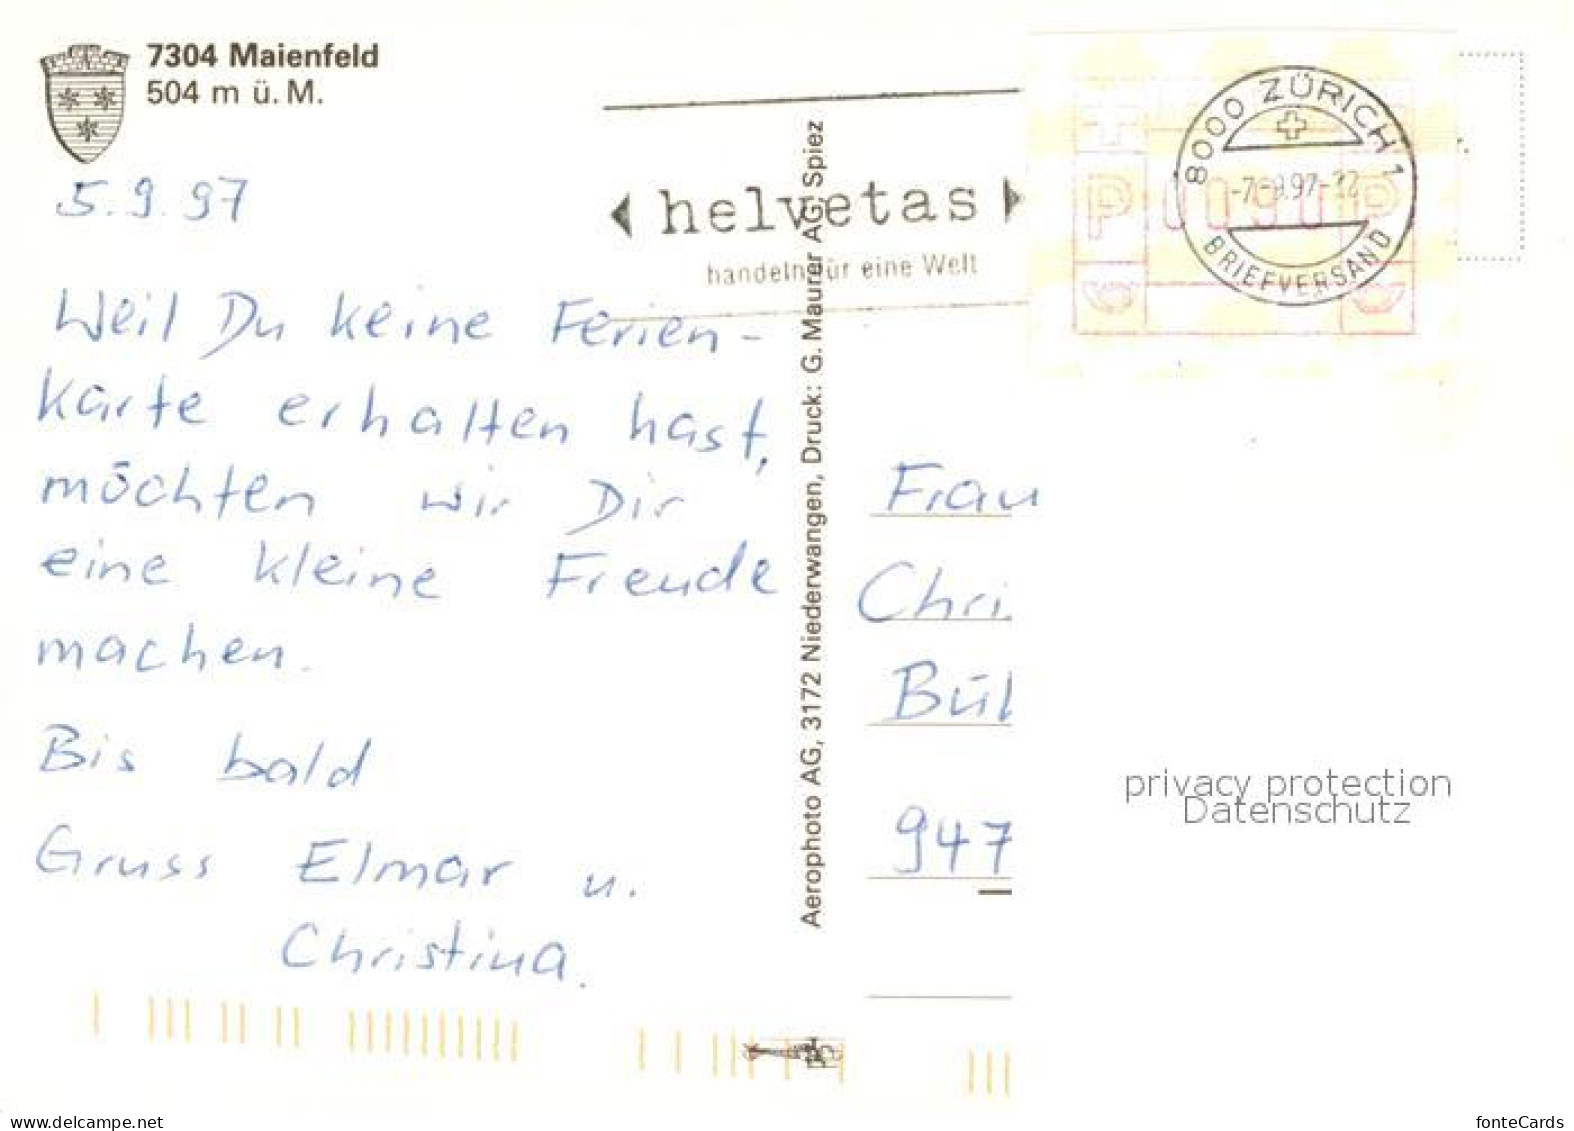 7304 Maienfeld
504 m ü. M.
5.9.97
Weil Du keine Ferien-
karte erhalten hast,
möchten wir Dir
eine kleine Freude
machen.
Bis bald
Gruss Elmar u.
Christina.
Aerophoto AG, 3172 Niederwangen, Druck: G. Maurer AG, Spiez
helvetas
handeln für eine Welt
8000 ZÜRICH 1
-7.-9.97-12
BRIEFVERSAND
P P
Frau
Chri
Bül
947
privacy protection
Datenschutz
www.delcampe.net
fonteCards